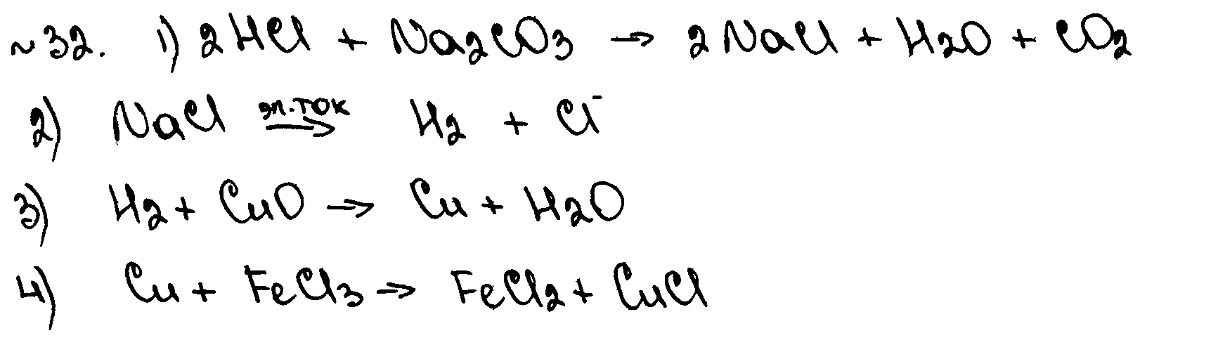 ~32. 1) 2HCl + Na2CO3 → 2NaCl + H2O + CO2
2) NaCl эл.ток → H2 + Cl⁻
3) H2 + CuO → Cu + H2O
4) Cu + FeCl3 → FeCl2 + CuCl